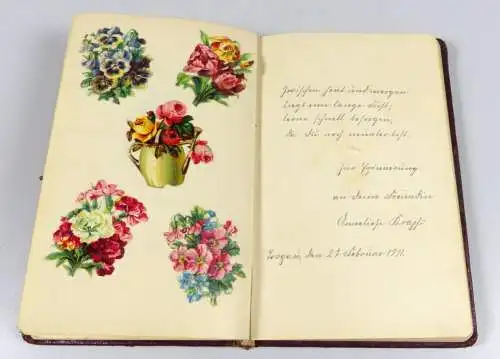 Zwischen heut und morgen
Liegt eine lange Frist,
lerne schnell besorgen,
da Du noch munter bist.
Zur Erinnerung
an Deine Freundin
Anneliese
den 27. Februar 1911.